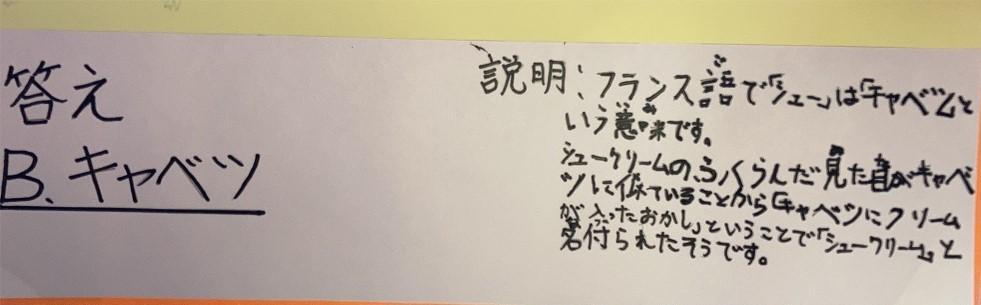 答え
B. キャベツ
説明:フランス語で「シュー」は「キャベツ」と
いう意味です。
シュークリームの、ふくらんだ見た目がキャベ
ツに似ていることから「キャベツにクリーム
が入ったおかし」ということで「シュークリーム」と
名付られたそうです。